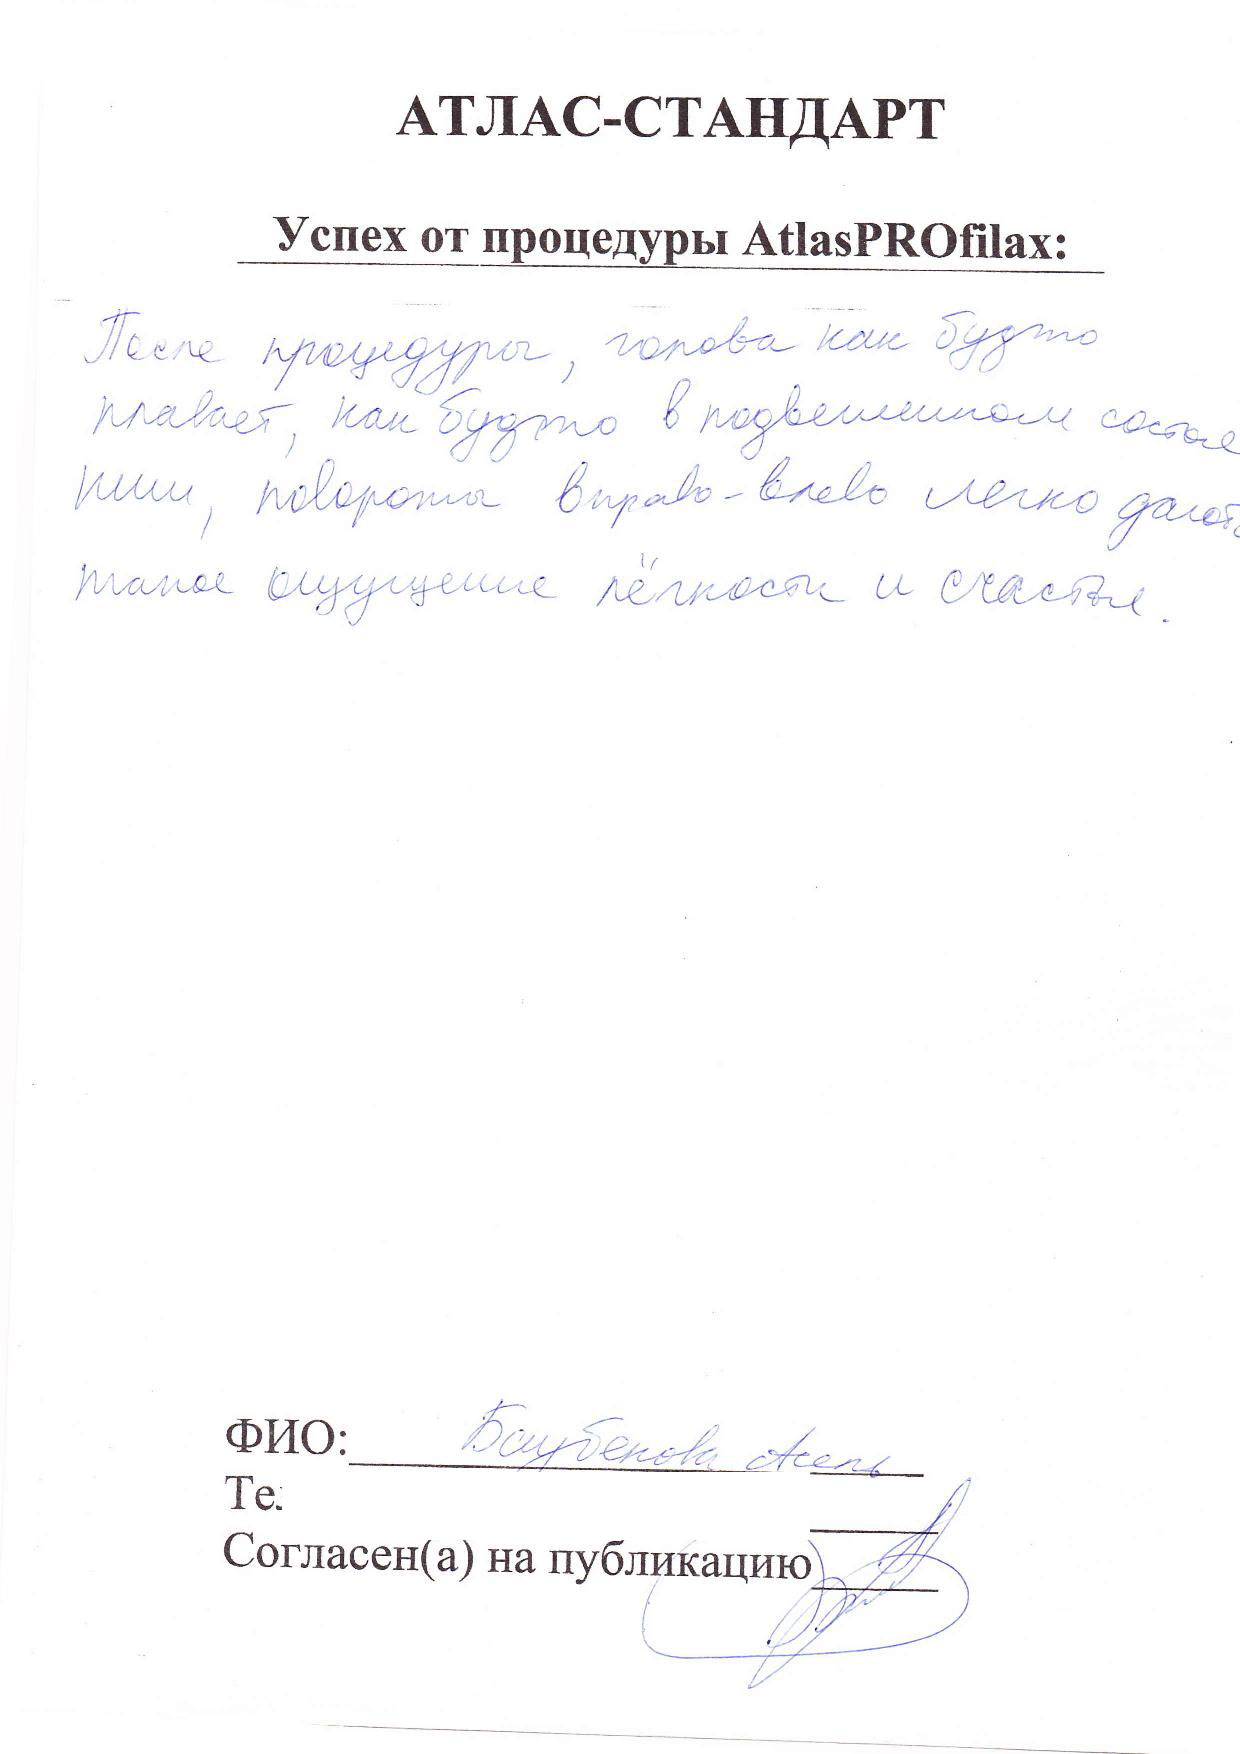 АТЛАС-СТАНДАРТ
Успех от процедуры AtlasPROfilax:
После процедуры, голова как будто
плавает, как будто в подвешенном состоя
нии, повороты вправо-влево легко даются
такое ощущение лёгкости и счастья.
ФИО: Баубекова Асель
Те
Согласен(а) на публикацию